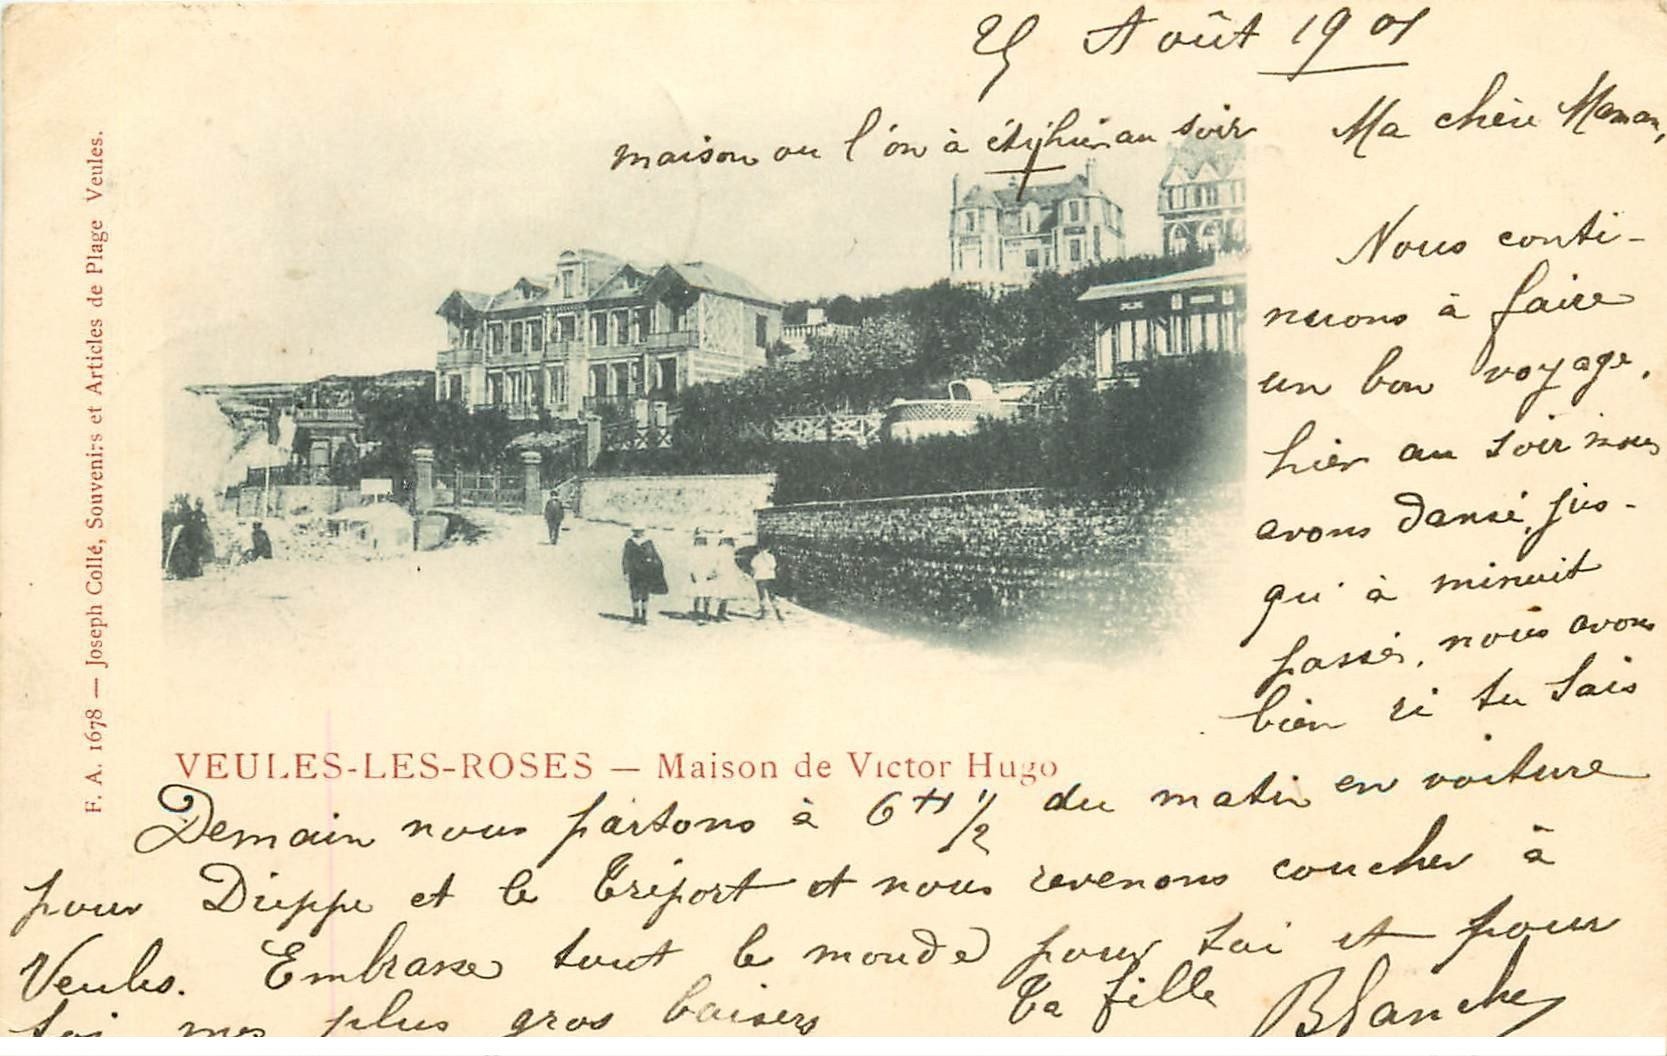 25 Août 1901
maison ou l'on à été hier au soir
Ma chère Maman,
Nous conti-
nuons à faire
un bon voyage,
hier au soir nous
avons dansé jus-
qu'à minuit
passés, nous avons
bien ri tu sais
F. A. 1678 — Joseph Collé, Souvenirs et Articles de Plage Veules.
VEULES-LES-ROSES — Maison de Victor Hugo
Demain nous partons à 6 H 1/2 du matin en voiture
pour Dieppe et le Tréport et nous revenons coucher à
Veules. Embrasse tout le monde pour toi et pour
toi mes plus gros baisers Ta fille Blanche